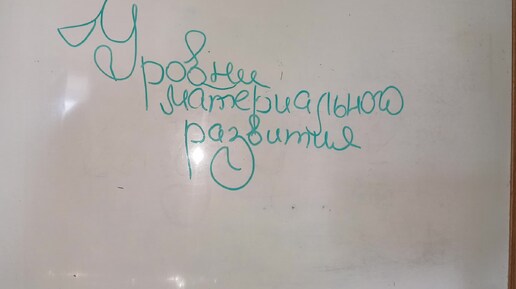 Уровни
материального
развития